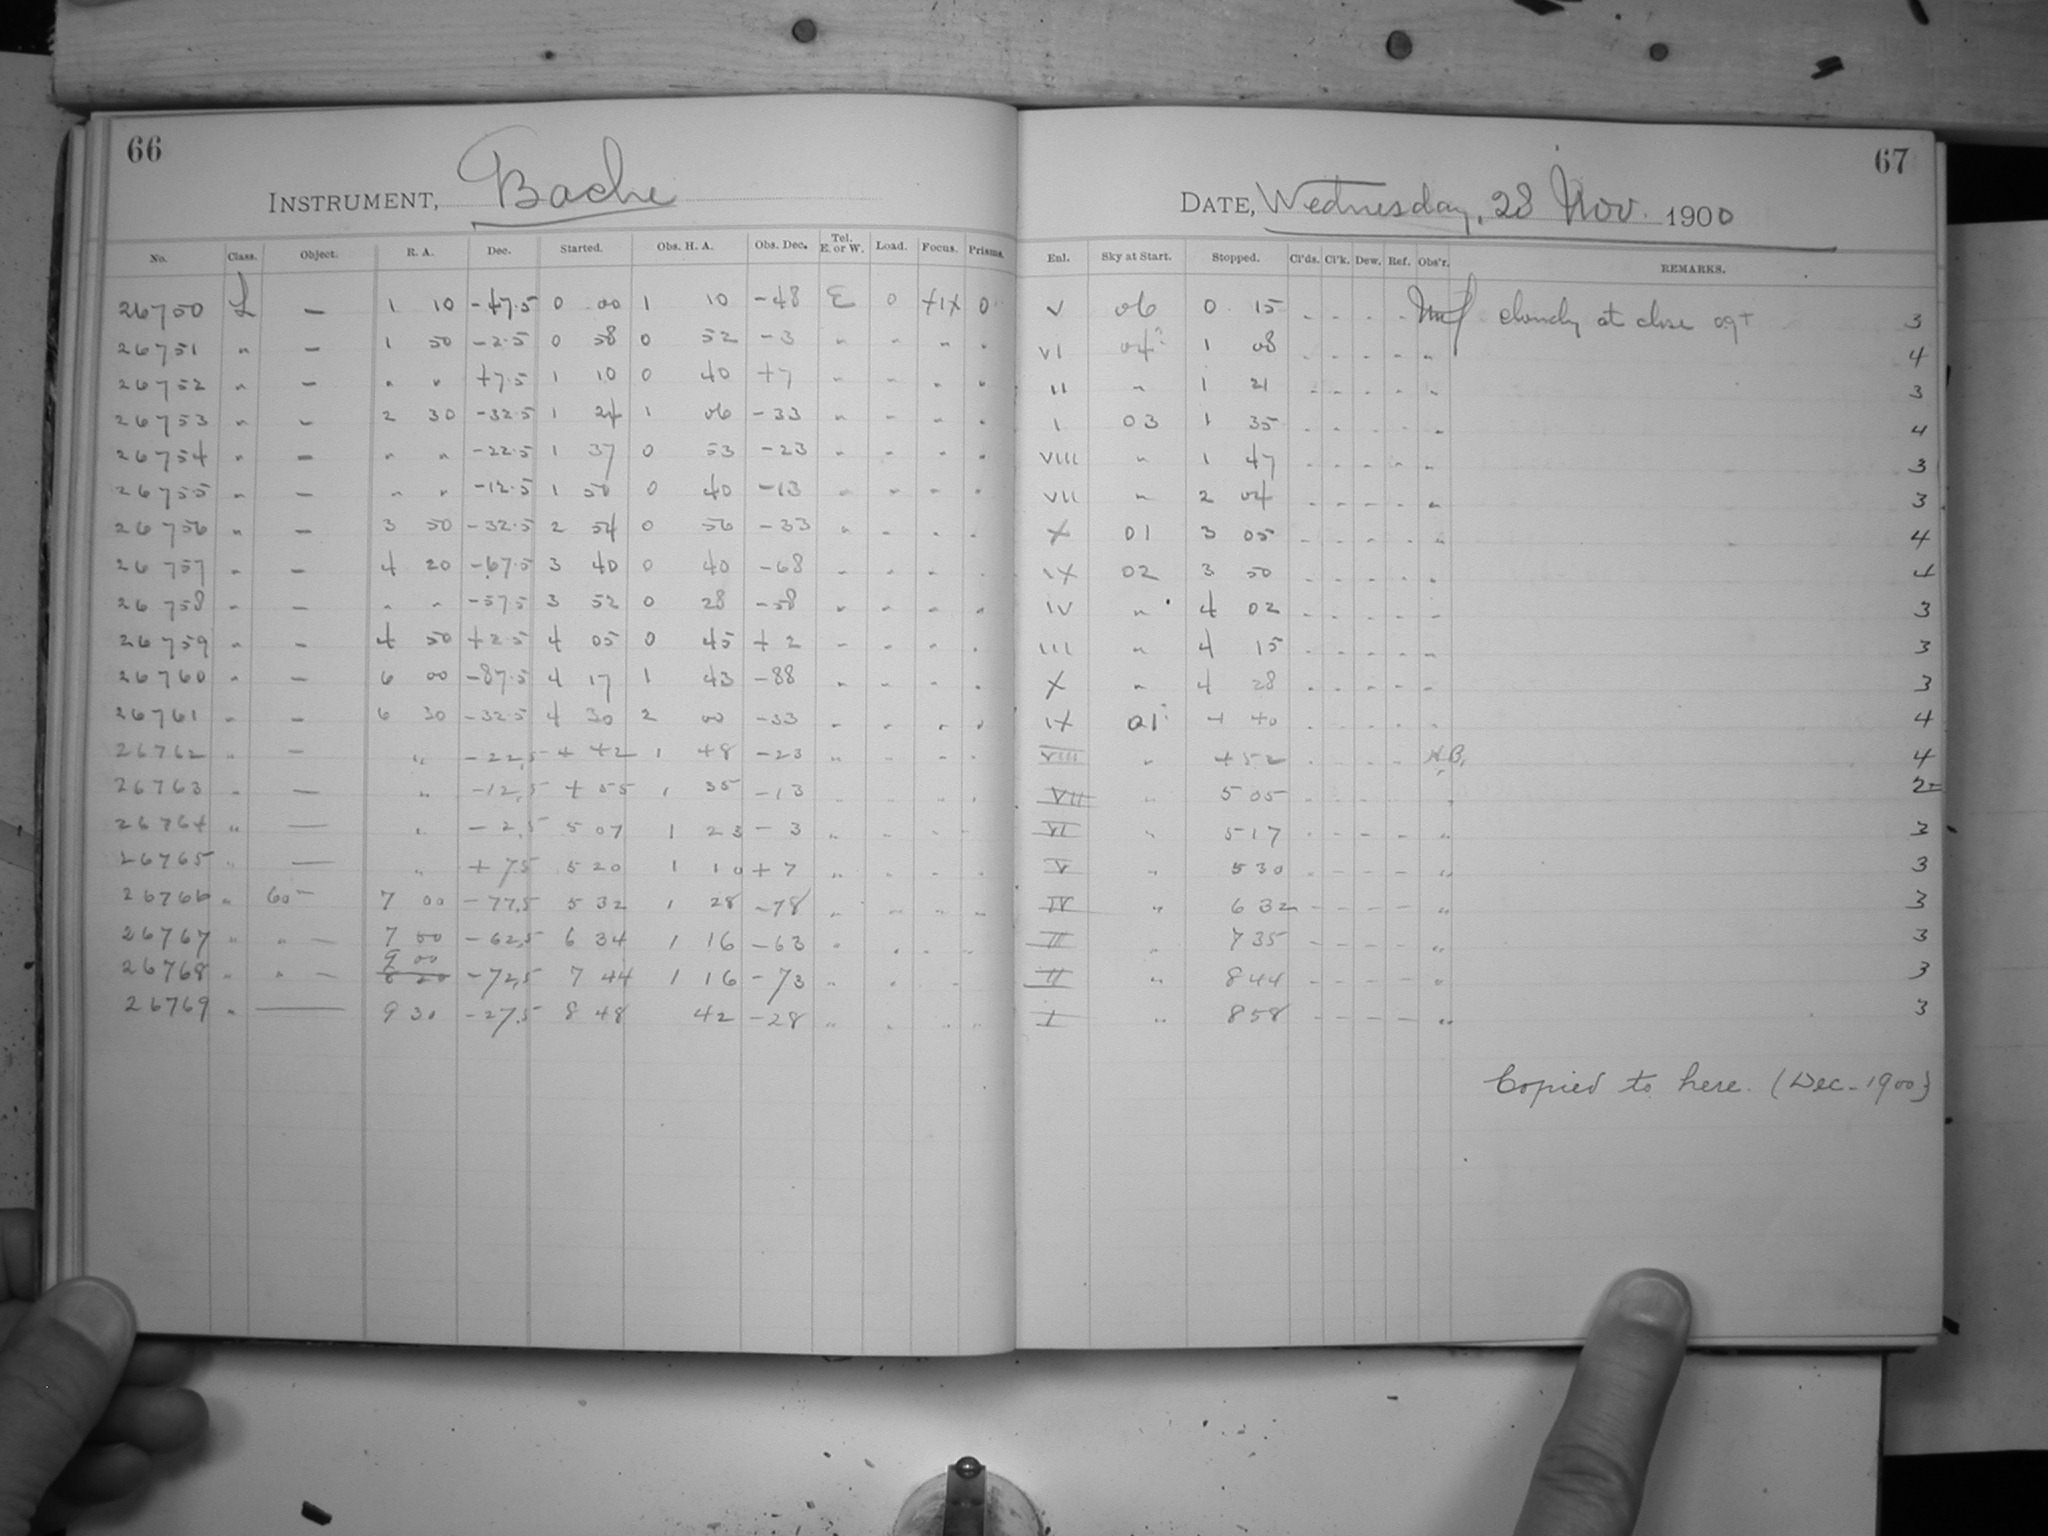 66
INSTRUMENT, Bache
No. Class. Object. R. A. Dec. Started. Obs. H. A. Obs. Dec. Tel. E. or W. Load. Focus. Prisms.
26750 L — 1 10 -47.5 0 00 1 10 -48 E 0 +1x 0
26751 " — 1 50 -2.5 0 58 0 52 -3 " " " "
26752 " — " " +7.5 1 10 0 40 +7 " " " "
26753 " — 2 30 -32.5 1 24 1 06 -33 " " " "
26754 " — " " -22.5 1 37 0 53 -23 " " " "
26755 " — " " -12.5 1 50 0 40 -13 " " " "
26756 " — 3 50 -32.5 2 54 0 56 -33 " " " "
26757 " — 4 20 -67.5 3 40 0 40 -68 " " " "
26758 " — " " -57.5 3 52 0 28 -58 " " " "
26759 " — 4 50 +2.5 4 05 0 45 +2 " " " "
26760 " — 6 00 -87.5 4 17 1 43 -88 " " " "
26761 " — 6 30 -32.5 4 30 2 00 -33 " " " "
26762 " — " -22,5 4 42 1 48 -23 " " " "
26763 " — " -12,5 4 55 1 35 -13 " " " "
26764 " — " -2,5 5 07 1 23 -3 " " " "
26765 " — " +7,5 5 20 1 10 +7 " " " "
26766 " 60m 7 00 -77,5 5 32 1 28 -78 " " " "
26767 " " — 7 00 -62,5 6 34 1 16 -63 " " " "
9 00
26768 " " — 8 20 -72,5 7 44 1 16 -73 " " " "
26769 " — 9 30 -27,5 8 48 42 -28 " " " "
67
DATE, Wednesday, 28 Nov. 1900
Enl. Sky at Start. Stopped. Cl'ds. Cl'k. Dew. Ref. Obs'r. REMARKS.
V 06 0 15 " " " " cloudy at close 09+ 3
VI 04 1 08 " " " " " 4
II " 1 21 " " " " " 3
I 03 1 35 " " " " " 4
VIII " 1 47 " " " " " 3
VII " 2 04 " " " " " 3
X 01 3 05 " " " " " 4
IX 02 3 50 " " " " " 4
IV " 4 02 " " " " " 3
III " 4 15 " " " " " 3
X " 4 28 " " " " " 3
IX 01 4 40 " " " " " 4
VIII " 4 52 " " " " H.B. 4
VII " 5 05 " " " " " 2
VI " 5 17 " " " " " 3
V " 5 30 " " " " " 3
IV " 6 32 " " " " " 3
III " 7 35 " " " " " 3
II " 8 44 " " " " " 3
I " 8 58 " " " " " 3
Copied to here. (Dec. 1900)